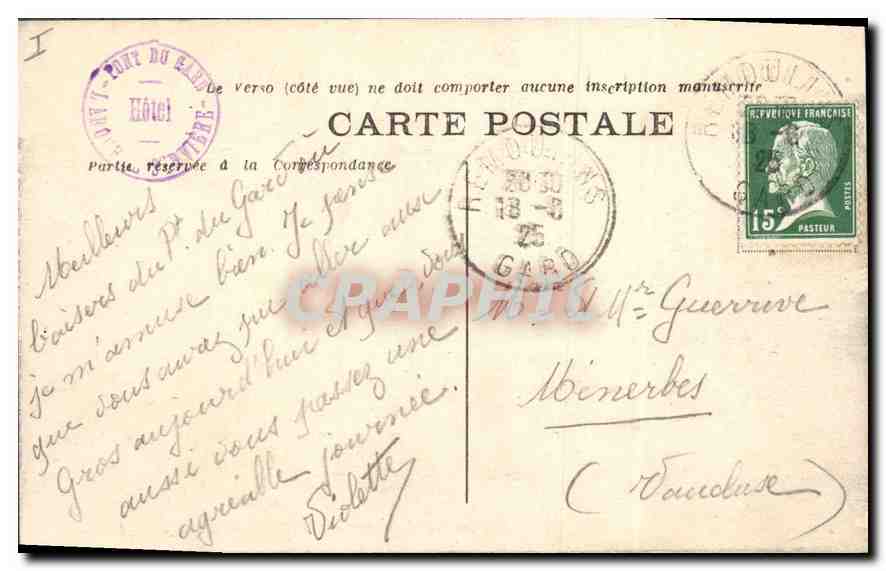 I
PONT DU GARD
Hôtel
Le Verso (côté vue) ne doit comporter aucune inscription manuscrite
CARTE POSTALE
Partie réservée à la Correspondance
REMOULINS
18 -8
25
GARD
REMOULINS
25
GARD
REPUBLIQUE FRANÇAISE
POSTES
15c
PASTEUR
Meilleurs
baisers du Pt. du Gard où
je m'amuse bien. Je pense
que vous avez pu aller aux
Gros aujourd'hui et que vous
aussi vous passez une
agréable journée.
Violette
CPAPHIL
Mr Guerrive
Ménerbes
(Vaucluse)